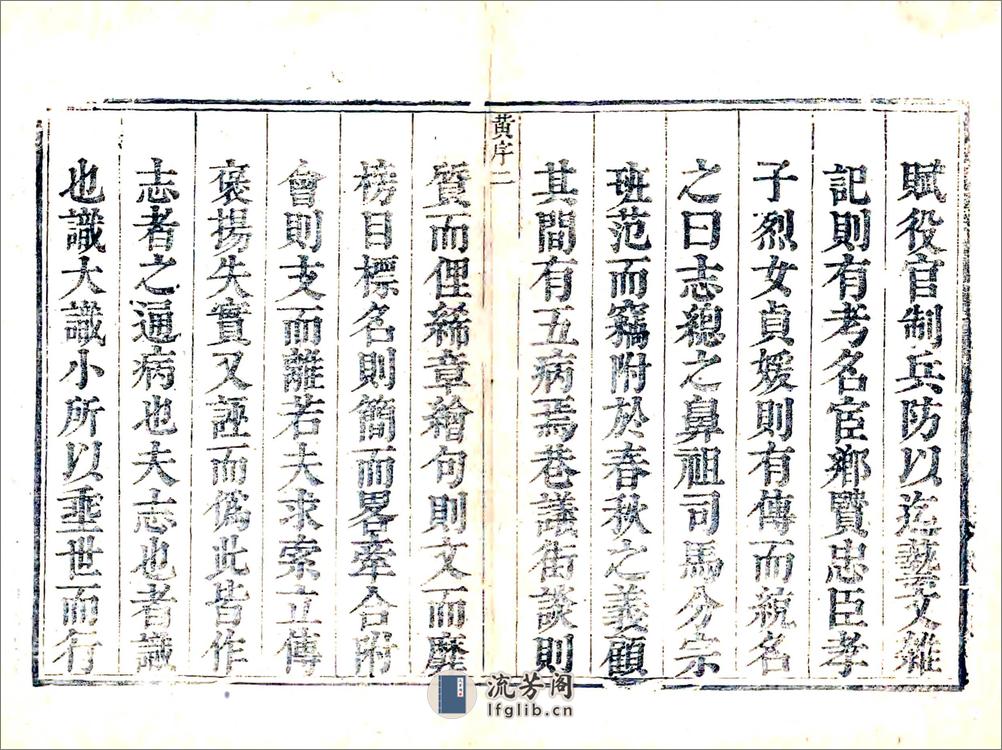 賦役官制兵防以迄藝文雜
記則有考名宦鄉賢忠臣孝
子烈女貞媛則有傳而統名
之曰志總之鼻祖司馬分宗
班范而竊附於春秋之義顧
其間有五病焉巷議街談則
黃序二
質而俚絺章繪句則文而靡
榜目標名則簡而畧牽合附
會則支而離若夫求索立傳
褒揚失實又誣而僞此皆作
志者之通病也夫志也者識
也識大識小所以垂世而行
流芳阁
lfglib.cn